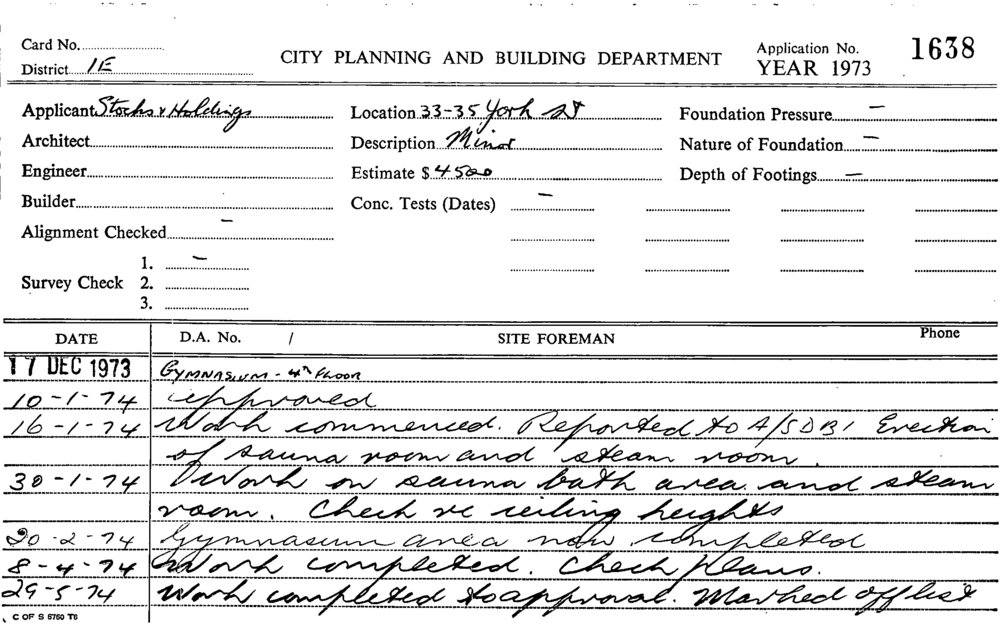 Card No.
District 1E
CITY PLANNING AND BUILDING DEPARTMENT
Application No. 1638
YEAR 1973
Applicant Stocks & Holdings
Location 33-35 York St
Foundation Pressure —
Architect
Description Minor
Nature of Foundation —
Engineer
Estimate $ 4500
Depth of Footings —
Builder
Conc. Tests (Dates) —
Alignment Checked —
1. —
Survey Check 2.
3.
DATE D.A. No. / SITE FOREMAN Phone
17 DEC 1973 GYMNASIUM - 4th FLOOR
10-1-74 approved
16-1-74 Work commenced. Reported to A/SDBI Erection
of sauna room and steam room.
30-1-74 Work on sauna bath area and steam
room. Check re ceiling heights
20-2-74 Gymnasium area now completed
8-4-74 Work completed. Check plans.
29-5-74 Work completed to approval. Marked off list
C OF S 5750 T6